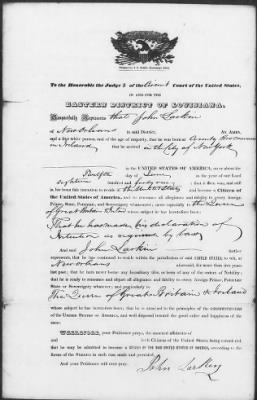 To the Honorable the Judge s of the Circuit Court of the United States,
IN AND FOR THE
EASTERN DISTRICT OF LOUISIANA.
Respectfully Represents that John Larkin
of New Orleans in said District, An Alien,
and a free white person, and of the age of majority, that he was born at County Roscommon
in Ireland that he arrived in the City of New York
in the UNITED STATES OF AMERICA, on or about the
Twelfth day of June in the year of our Lord
eighteen hundred and forty one that it then was, and still
is his bona fide intention to reside in the United States and become a Citizen of
the United States of America, and to renounce all allegiance and fidelity to every foreign
Prince, State, Potentate, and Sovereignty whatever; and more especially to The Queen
of Great Britain & Ireland whose subject he has heretofore been;
That he has made his declaration of
Intention as required by law
And said John Larkin further
represents, that he has continued to reside within the jurisdiction of said UNITED STATES, to wit, at
New Orleans aforesaid, for more than five years
last past; that he hath never borne any hereditary title, or term of any of the orders of Nobility;
that he is ready to renounce and abjure all allegiance and fidelity to every Foreign Prince, Potentate
State or Sovereignty whatever, and particularly to
The Queen of Great Britain & Ireland
whose subject he has heretofore been; that he is attached to the principles of the CONSTITUTION
of the UNITED STATES OF AMERICA, and well disposed toward the good order and happiness of the
same.
WHEREFORE, your Petitioner prays, the annexed affidavits of
and both Citizens of the United States being existed and
that he may be admitted to become a CITIZEN OF THE SAID UNITED STATES OF AMERICA, according to the
forms of the Statutes in such case made and provided.
And your Petitioner will ever pray.
John Larkin